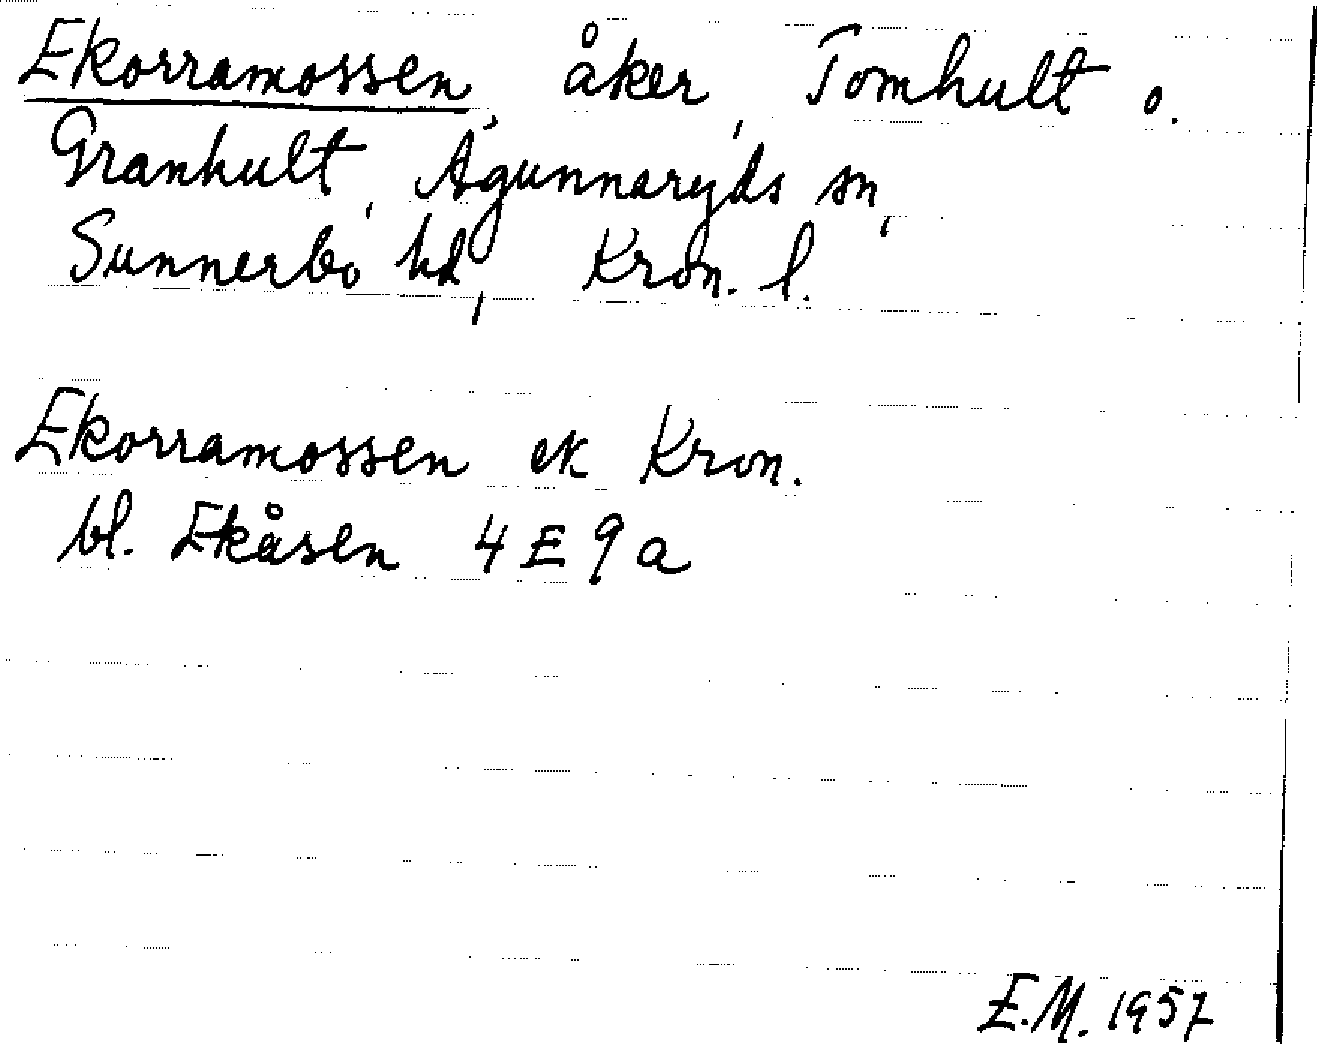 Ekorramossen, åker, Tomhult o.
Granhult, Agunnaryds sn,
Sunnerbo hd, Kron. l.
Ekorramossen ek Kron.
bl. Ekåsen 4 E 9 a
E.M. 1957